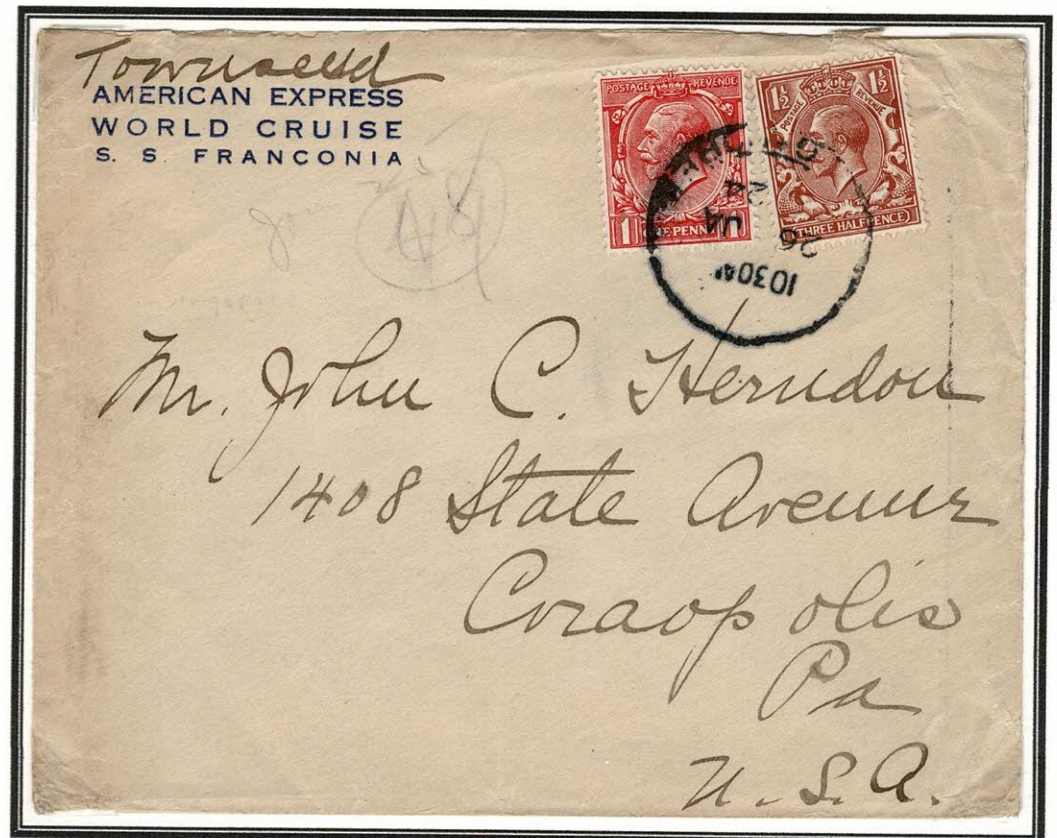 Townsend
AMERICAN EXPRESS
WORLD CRUISE
S. S. FRANCONIA
POSTAGE REVENUE
1 ONE PENNY 1
1½ 1½
POSTAGE REVENUE
THREE HALFPENCE
24
JA
26
10 30 A
Mr. John C. Herndon
1408 State Avenue
Coraopolis
Pa
U.S.A.